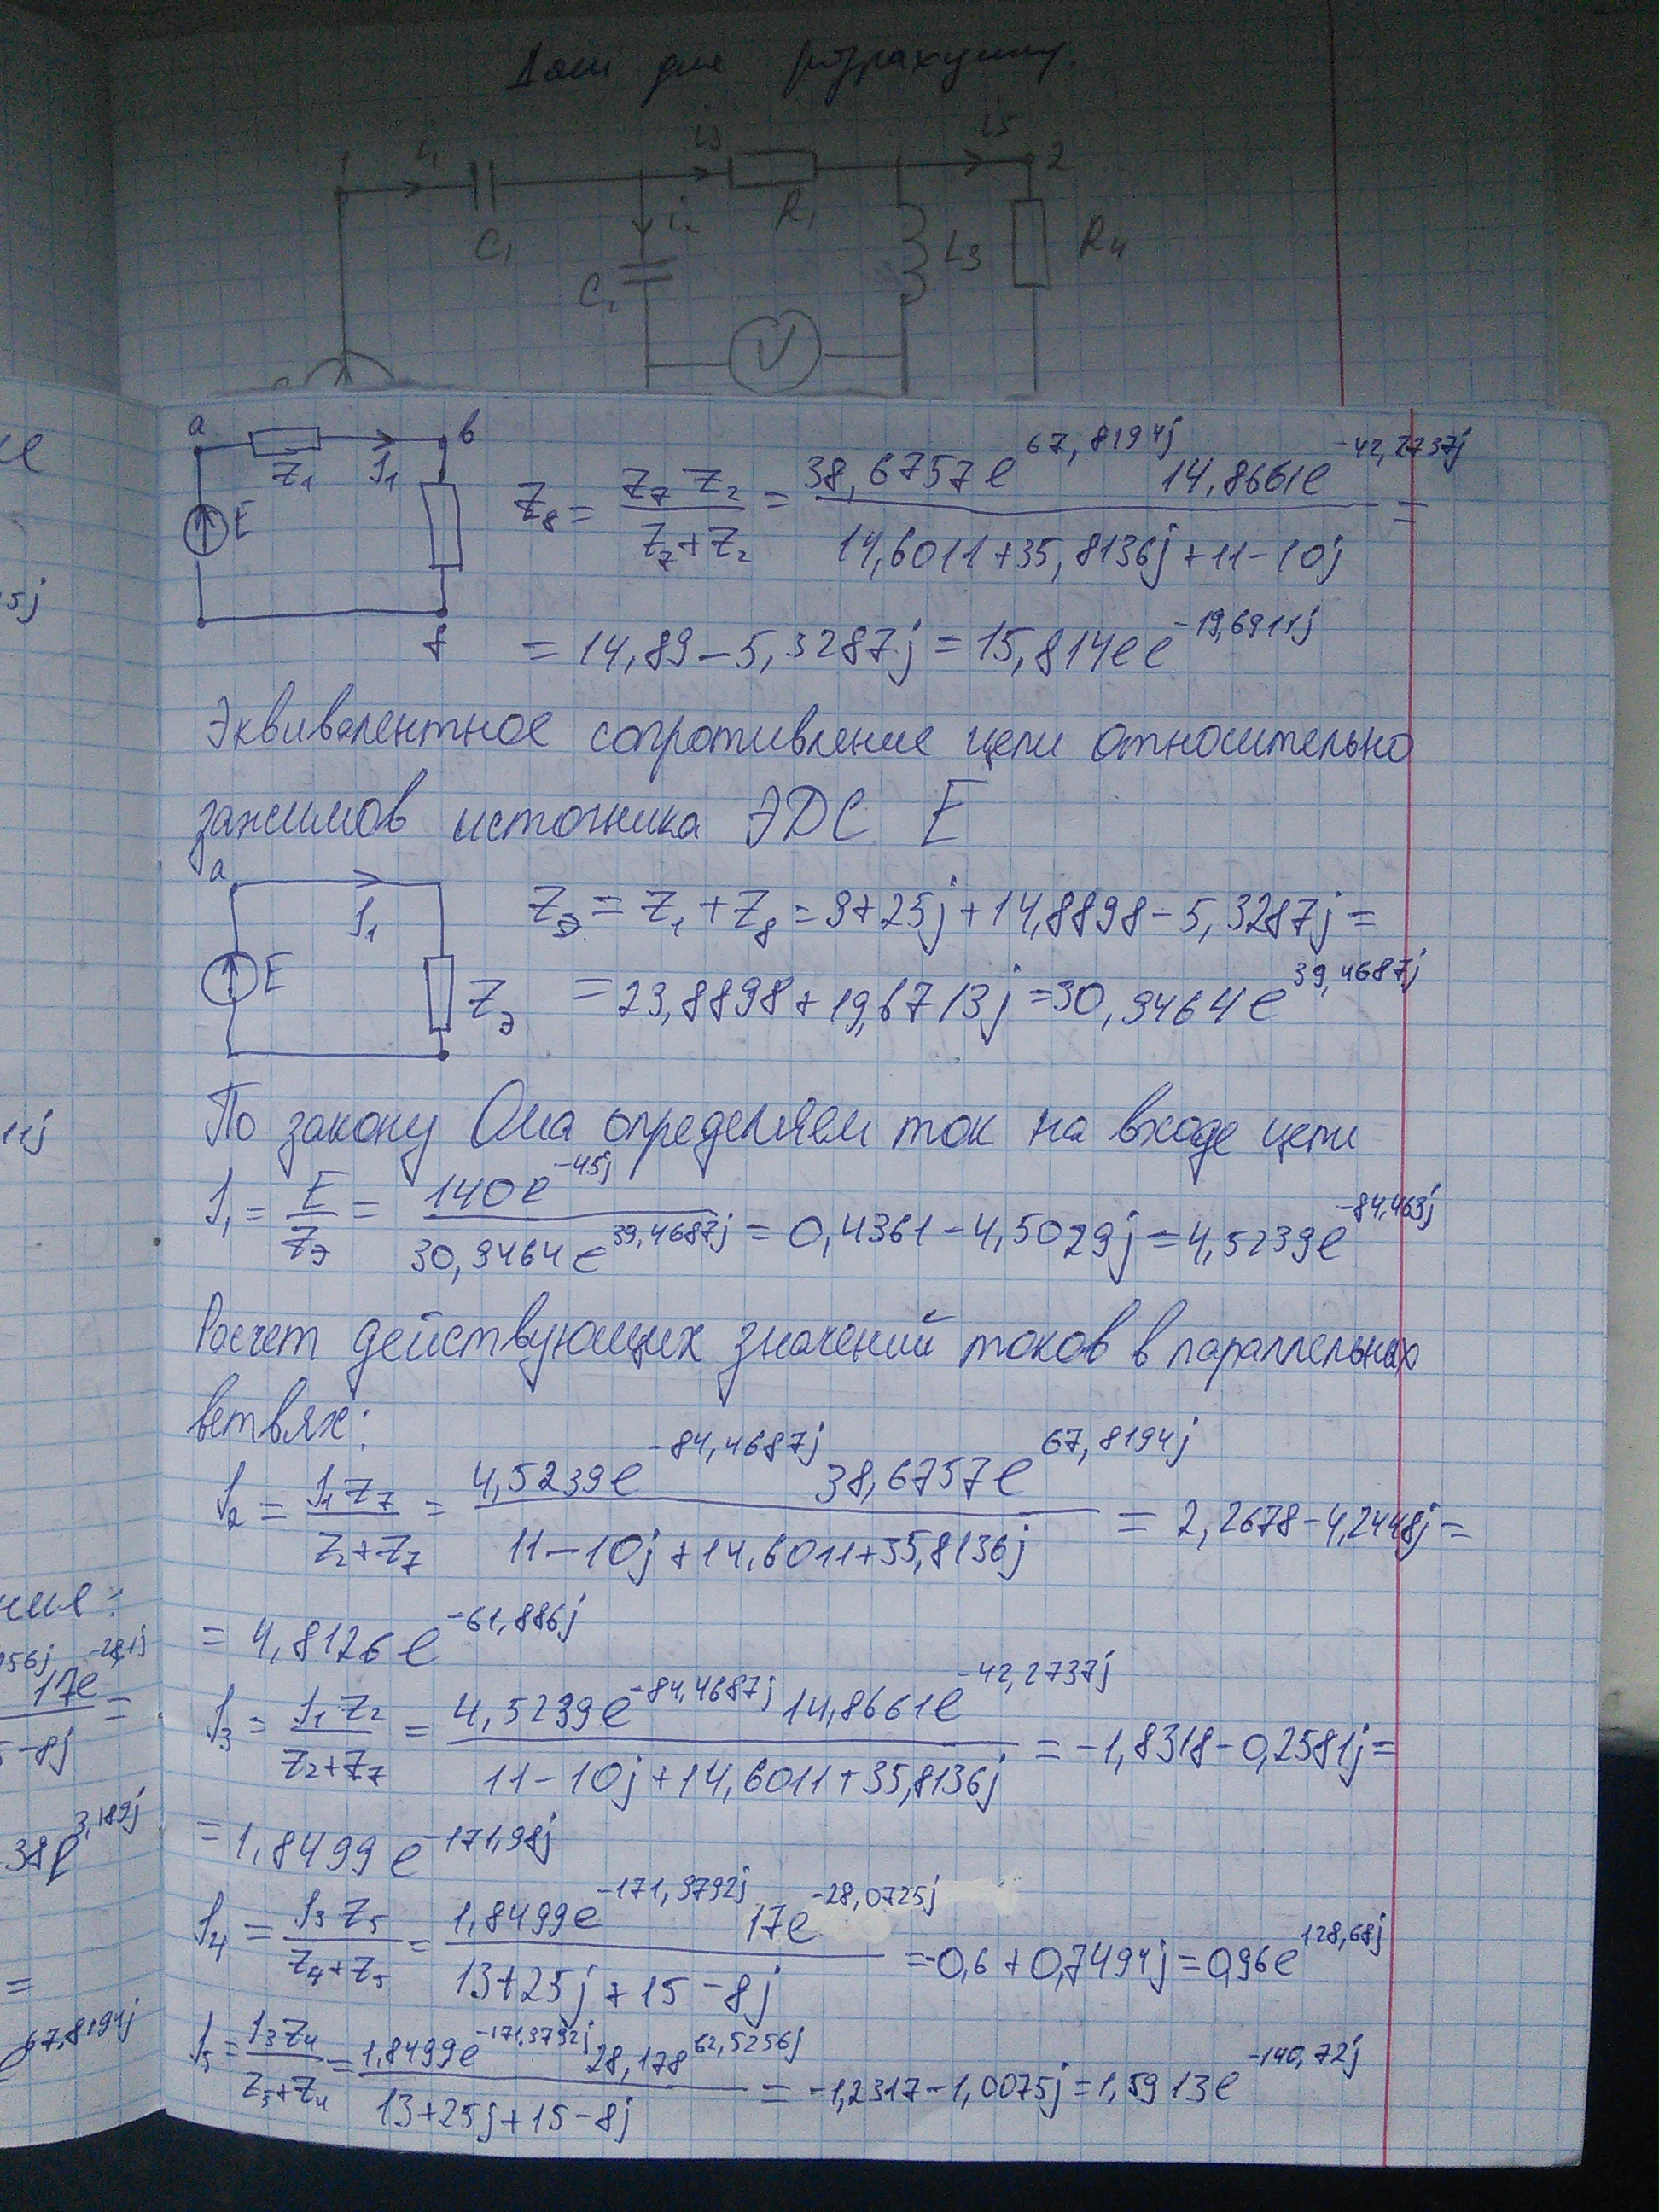 Дані для розрахунку.
i1 i3 i5 2
C1 i2 R1 L3 R4
C2
V
a Z1 I1 b
E
f
Z8 = Z7 Z2 / (Z7+Z2) = 38,6757e^67,8194j 14,8661e^-42,2737j / (14,6011+35,8136j+11-10j) =
= 14,89-5,3287j = 15,814ee^-19,6911j
Эквивалентное сопротивление цепи относительно
зажимов источника ЭДС E
a I1
E Zэ
Zэ = Z1+Z8 = 9+25j+14,8898-5,3287j =
= 23,8898+19,6713j = 30,9464e^39,4687j
По закону Ома определяем ток на входе цепи
I1 = E / Zэ = 140e^-45j / 30,9464e^39,4687j = 0,4361-4,5029j = 4,5239e^-84,463j
Расчет действующих значений токов в параллельных
ветвях:
I2 = I1 Z7 / (Z2+Z7) = 4,5239e^-84,4687j 38,6757e^67,8194j / (11-10j+14,6011+35,8136j) = 2,2678-4,2448j =
= 4,8126e^-61,886j
I3 = I1 Z2 / (Z2+Z7) = 4,5239e^-84,4687j 14,8661e^-42,2737j / (11-10j+14,6011+35,8136j) = -1,8318-0,2581j =
= 1,8499e^-171,98j
I4 = I3 Z5 / (Z4+Z5) = 1,8499e^-171,9792j 17e^-28,0725j / (13+25j+15-8j) = -0,6+0,7494j = 0,96e^128,68j
I5 = I3 Z4 / (Z5+Z4) = 1,8499e^-171,9792j 28,178^62,5256j / (13+25j+15-8j) = -1,2317-1,0075j = 1,5913e^-140,72j
5j
11j
ния:
17e
-8j
38e^3,189j
=
e^67,8194j